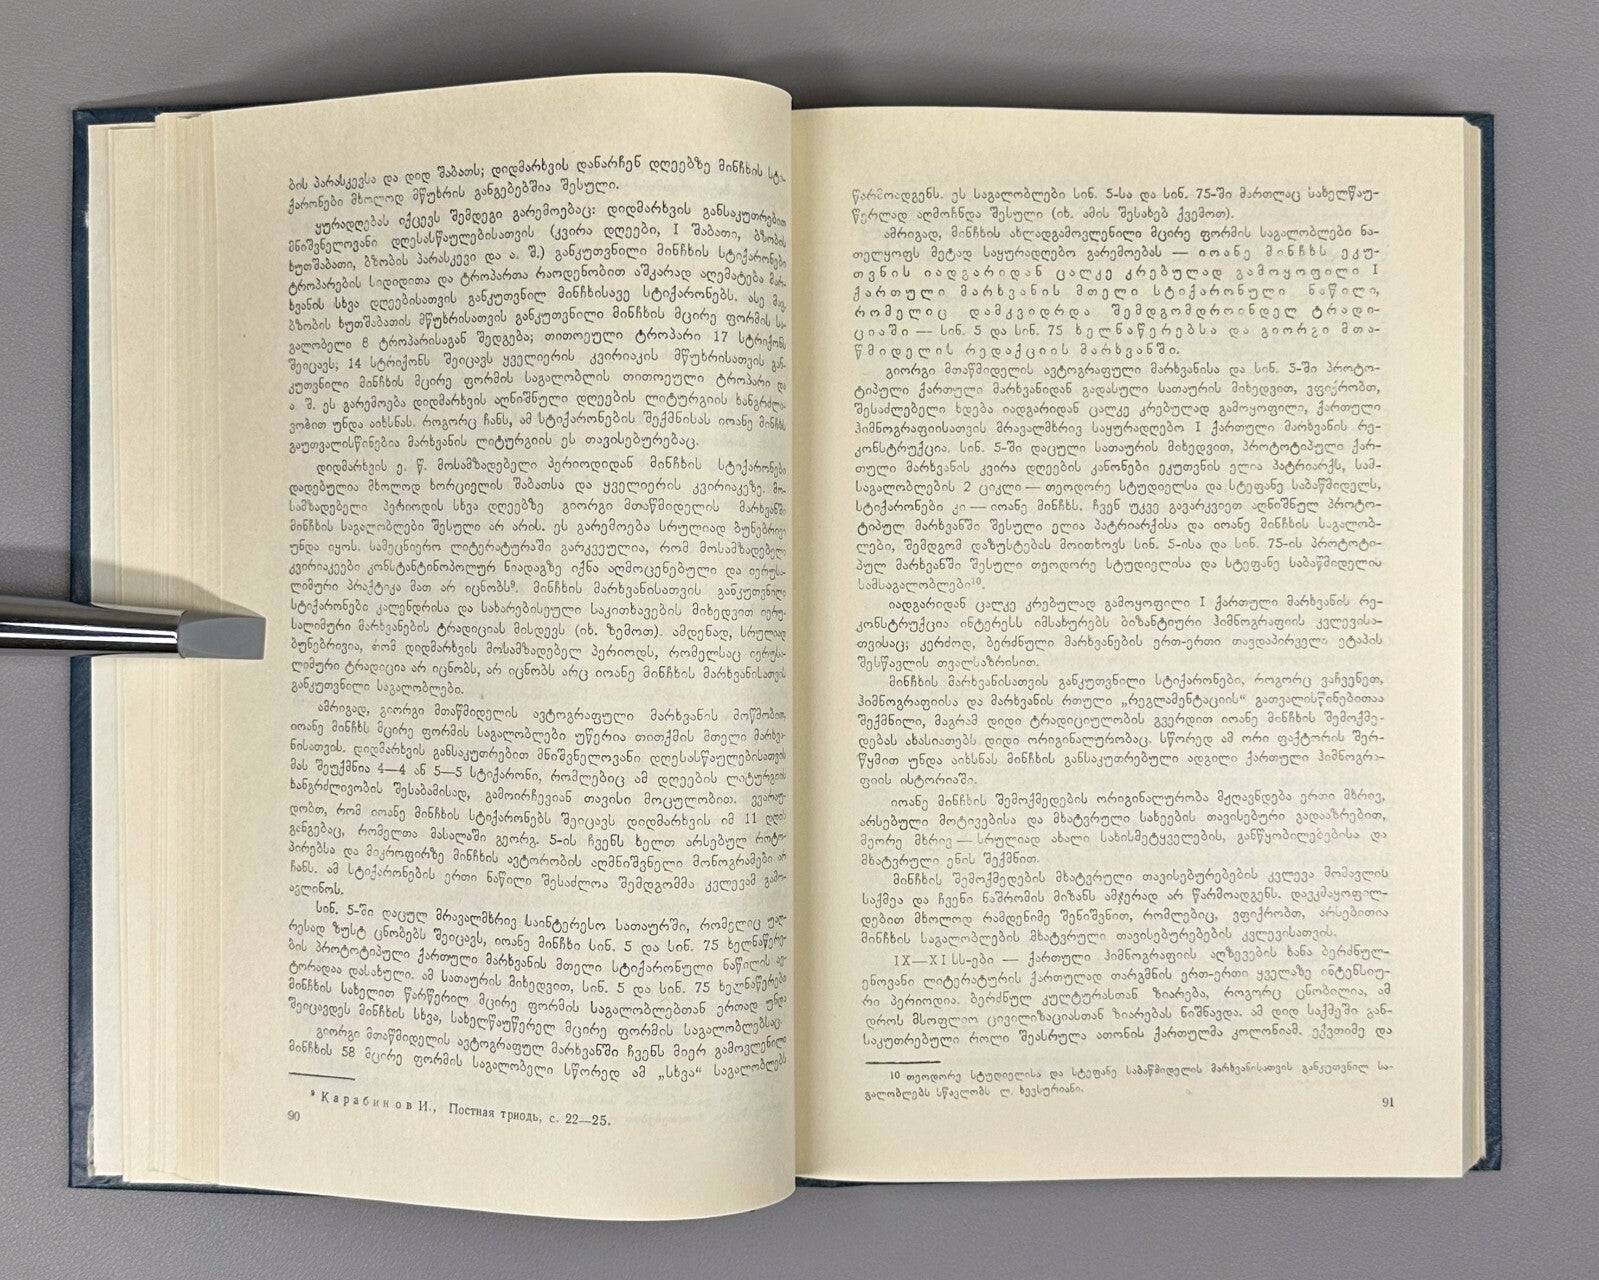 ბის პარასკევსა და დიდ შაბათს; დიდმარხვის დანარჩენ დღეებზე მინჩხის სტი-
ქარონები მხოლოდ მწუხრის განგებებშია შესული.
ყურადღებას იქცევს შემდეგი გარემოებაც: დიდმარხვის განსაკუთრებით
მნიშვნელოვანი დღესასწაულებისათვის (კვირა დღეები, I შაბათი, ბზობის
ხუთშაბათი, ბზობის პარასკევი და ა. შ.) განკუთვნილი მინჩხის სტიქარონები
ტროპარების სიდიდითა და ტროპართა რაოდენობით აშკარად აღემატება მარ-
ხვანის სხვა დღეებისათვის განკუთვნილ მინჩხისავე სტიქარონებს. ასე მაგ.
ბზობის ხუთშაბათის მწუხრისათვის განკუთვნილი მინჩხის მცირე ფორმის სა-
გალობელი 8 ტროპარისაგან შედგება; თითოეული ტროპარი 17 სტრიქონს
შეიცავს; 14 სტრიქონს შეიცავს ყველიერის კვირიაკის მწუხრისათვის გან-
კუთვნილი მინჩხის მცირე ფორმის საგალობლის თითოეული ტროპარი და
ა. შ. ეს გარემოება დიდმარხვის აღნიშნული დღეების ლიტურგიის ხანგრძლი-
ვობით უნდა აიხსნას. როგორც ჩანს, ამ სტიქარონების შექმნისას იოანე მინჩხს
გაუთვალისწინებია მარხვანის ლიტურგიის ეს თავისებურებაც.
დიდმარხვის ე. წ. მოსამზადებელი პერიოდიდან მინჩხის სტიქარონები
დადებულია მხოლოდ ხორციელის შაბათსა და ყველიერის კვირიაკეზე. მო-
სამზადებელი პერიოდის სხვა დღეებზე გიორგი მთაწმიდელის მარხვანში
მინჩხის საგალობლები შესული არ არის. ეს გარემოება სრულიად ბუნებრივი
უნდა იყოს. სამეცნიერო ლიტერატურაში გარკვეულია, რომ მოსამზადებელი
კვირიაკეები კონსტანტინოპოლურ ნიადაგზე იქნა აღმოცენებული და იერუსა-
ლიმური პრაქტიკა მათ არ იცნობს⁹. მინჩხის მარხვანისათვის განკუთვნილი
სტიქარონები კალენდრისა და სახარებისეული საკითხავების მიხედვით იერუ-
სალიმური მარხვანების ტრადიციას მისდევს (იხ. ზემოთ). ამდენად, სრულიად
ბუნებრივია, რომ დიდმარხვის მოსამზადებელ პერიოდს, რომელსაც იერუსა-
ლიმური ტრადიცია არ იცნობს, არ იცნობს არც იოანე მინჩხის მარხვანისათვის
განკუთვნილი საგალობლები.
ამრიგად, გიორგი მთაწმიდელის ავტოგრაფული მარხვანის მოწმობით,
იოანე მინჩხს მცირე ფორმის საგალობლები უწერია თითქმის მთელი მარხვა-
ნისათვის. დიდმარხვის განსაკუთრებით მნიშვნელოვანი დღესასწაულებისათვის
მას შეუქმნია 4—4 ან 5—5 სტიქარონი, რომლებიც ამ დღეების ლიტურგიის
ხანგრძლივობის შესაბამისად, გამოირჩევიან თავისი მოცულობით. ვვარაუ-
დობთ, რომ იოანე მინჩხის სტიქარონებს შეიცავს დიდმარხვის იმ 11 დღის
განგებაც, რომელთა მასალაში გეორგ. 5-ის ჩვენს ხელთ არსებულ როტო-
პირებსა და მიკროფირზე მინჩხის ავტორობის აღმნიშვნელი მონოგრამები არ
ჩანს. ამ სტიქარონების ერთი ნაწილი შესაძლოა შემდგომმა კვლევამ გამო-
ავლინოს.
სინ. 5-ში დაცულ მრავალმხრივ საინტერესო სათაურში, რომელიც უაღ-
რესად ზუსტ ცნობებს შეიცავს, იოანე მინჩხი სინ. 5 და სინ. 75 ხელნაწერე-
ბის პროტოტიპული ქართული მარხვანის მთელი სტიქარონული ნაწილის ავ-
ტორადაა დასახული. ამ სათაურის მიხედვით, სინ. 5 და სინ. 75 ხელნაწერები
მინჩხის სახელით წარწერილ მცირე ფორმის საგალობლებთან ერთად უნდა
შეიცავდეს მინჩხის სხვა, სახელწაუწერელ მცირე ფორმის საგალობლებსაც.
გიორგი მთაწმიდელის ავტოგრაფულ მარხვანში ჩვენს მიერ გამოვლენილი
მინჩხის 58 მცირე ფორმის საგალობელი სწორედ ამ „სხვა“ საგალობლებს
⁹ Карабинов И., Постная триодь, с. 22—25.
90
წარმოადგენს. ეს საგალობლები სინ. 5-სა და სინ. 75-ში მართლაც სახელწაუ-
წერლად აღმოჩნდა შესული (იხ. ამის შესახებ ქვემოთ).
ამრიგად, მინჩხის ახლადგამოვლენილი მცირე ფორმის საგალობლები ნა-
თელყოფს მეტად საყურადღებო გარემოებას — იოანე მინჩხს ეკუ-
თვნის იადგარიდან ცალკე კრებულად გამოყოფილი I
ქართული მარხვანის მთელი სტიქარონული ნაწილი,
რომელიც დამკვიდრდა შემდგომდროინდელ ტრადი-
ციაში — სინ. 5 და სინ. 75 ხელნაწერებსა და გიორგი მთა-
წმიდელის რედაქციის მარხვანში.
გიორგი მთაწმიდელის ავტოგრაფული მარხვანისა და სინ. 5-ში პროტო-
ტიპული ქართული მარხვანიდან გადასული სათაურის მიხედვით, ვფიქრობთ,
შესაძლებელი ხდება იადგარიდან ცალკე კრებულად გამოყოფილი, ქართული
ჰიმნოგრაფიისათვის მრავალმხრივ საყურადღებო I ქართული მარხვანის რე-
კონსტრუქცია. სინ. 5-ში დაცული სათაურის მიხედვით, პროტოტიპული ქარ-
თული მარხვანის კვირა დღეების კანონები ეკუთვნის ელია პატრიარქს, სამ-
საგალობლების 2 ციკლი — თეოდორე სტუდიელსა და სტეფანე საბაწმიდელს,
სტიქარონები კი — იოანე მინჩხს. ჩვენ უკვე გავარკვიეთ აღნიშნულ პროტო-
ტიპულ მარხვანში შესული ელია პატრიარქისა და იოანე მინჩხის საგალობ-
ლები, შემდგომ დაზუსტებას მოითხოვს სინ. 5-ისა და სინ. 75-ის პროტოტი-
პულ მარხვანში შესული თეოდორე სტუდიელისა და სტეფანე საბაწმიდელის
სამსაგალობლები¹⁰.
იადგარიდან ცალკე კრებულად გამოყოფილი I ქართული მარხვანის რე-
კონსტრუქცია ინტერესს იმსახურებს ბიზანტიური ჰიმნოგრაფიის კვლევისა-
თვისაც; კერძოდ, ბერძნული მარხვანების ერთ-ერთი თავდაპირველი ეტაპის
შესწავლის თვალსაზრისით.
მინჩხის მარხვანისათვის განკუთვნილი სტიქარონები, როგორც ვაჩვენეთ,
ჰიმნოგრაფიისა და მარხვანის რთული „რეგლამენტაციის“ გათვალისწინებითაა
შექმნილი, მაგრამ დიდი ტრადიციულობის გვერდით იოანე მინჩხის შემოქმე-
დებას ახასიათებს დიდი ორიგინალურობაც. სწორედ ამ ორი ფაქტორის შერ-
წყმით უნდა აიხსნას მინჩხის განსაკუთრებული ადგილი ქართული ჰიმნოგრა-
ფიის ისტორიაში.
იოანე მინჩხის შემოქმედების ორიგინალურობა მჟღავნდება ერთი მხრივ,
არსებული მოტივებისა და მხატვრული სახეების თავისებური გადააზრებით,
მეორე მხრივ — სრულიად ახალი სახისმეტყველების, განწყობილებებისა და
მხატვრული ენის შექმნით.
მინჩხის შემოქმედების მხატვრული თავისებურებების კვლევა მომავლის
საქმეა და ჩვენი ნაშრომის მიზანს ამჯერად არ წარმოადგენს. დავკმაყოფილ-
დებით მხოლოდ რამდენიმე შენიშვნით, რომლებიც, ვფიქრობთ, არსებითია
მინჩხის საგალობლების მხატვრული თავისებურებების კვლევისათვის.
IX—XI სს-ები — ქართული ჰიმნოგრაფიის აღზევების ხანა ბერძნულ-
ენოვანი ლიტერატურის ქართულად თარგმნის ერთ-ერთი ყველაზე ინტენსიუ-
რი პერიოდია. ბერძნულ კულტურასთან ზიარება, როგორც ცნობილია, ამ
დროს მსოფლიო ცივილიზაციასთან ზიარებას ნიშნავდა. ამ დიდ საქმეში გან-
საკუთრებული როლი შეასრულა ათონის ქართულმა კოლონიამ. ექვთიმე და
¹⁰ თეოდორე სტუდიელისა და სტეფანე საბაწმიდელის მარხვანისათვის განკუთვნილ სა-
გალობლებს სწავლობს ლ. ხევსურიანი.
91